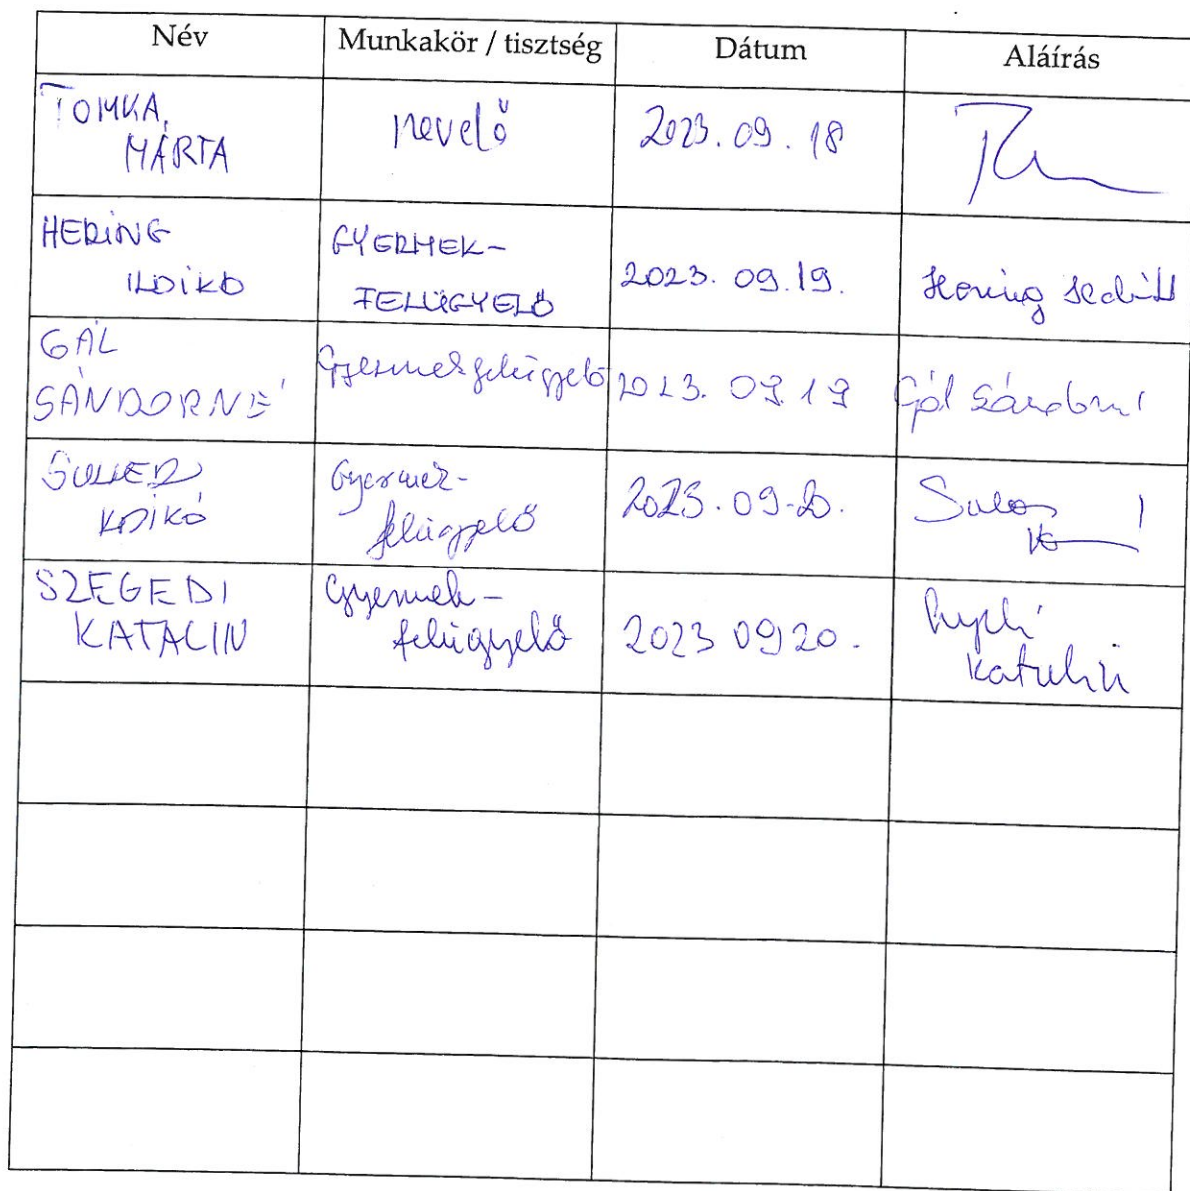 Név Munkakör / tisztség Dátum Aláírás
TOMKA MÁRTA nevelő 2023.09.18
HERING ILDIKÓ GYERMEK-FELÜGYELŐ 2023.09.19. Hering Ildikó
GÁL SÁNDORNÉ Gyermekfelügyelő 2023.09.19 Gál Sándorné
ILDIKÓ Gyermek-felügyelő 2023.09.20.
SZEGEDI KATALIN Gyermek-felügyelő 2023 09 20. Katalin